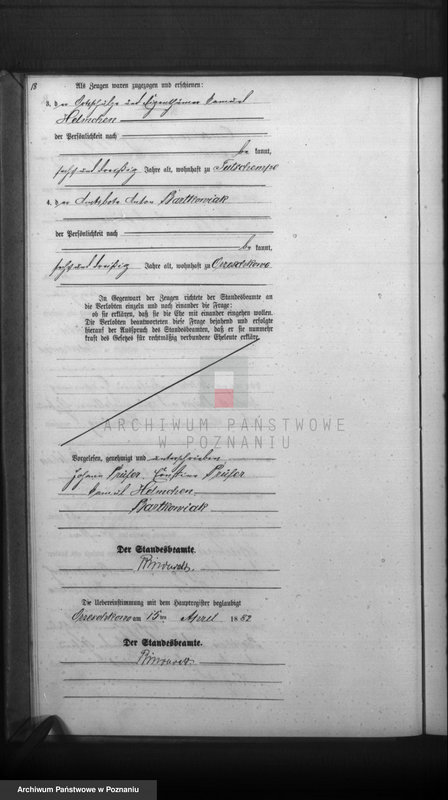 18
Als Zeugen waren zugezogen und erschienen:
3. der Ortsschulze und Eigenthümer Samuel
Helmchen
der Persönlichkeit nach
be kannt,
sechsunddreißig Jahre alt, wohnhaft zu
4. der Amtsbote Anton Bartkowiak
der Persönlichkeit nach
be kannt,
sechsunddreißig Jahre alt, wohnhaft zu
In Gegenwart der Zeugen richtete der Standesbeamte an
die Verlobten einzeln und nach einander die Frage:
ob sie erklären, daß sie die Ehe mit einander eingehen wollen.
Die Verlobten beantworteten diese Frage bejahend und erfolgte
hierauf der Ausspruch des Standesbeamten, daß er sie nunmehr
kraft des Gesetzes für rechtmäßig verbundene Eheleute erkläre.
ARCHIWUM PAŃSTWOWE
W POZNANIU
Vorgelesen, genehmigt und unterschrieben
Johann Prüfer Prüfer
Samuel Helmchen
Bartkowiak
Der Standesbeamte.
Die Uebereinstimmung mit dem Hauptregister beglaubigt
am 15ten April 1882
Der Standesbeamte.
Archiwum Państwowe w Poznaniu